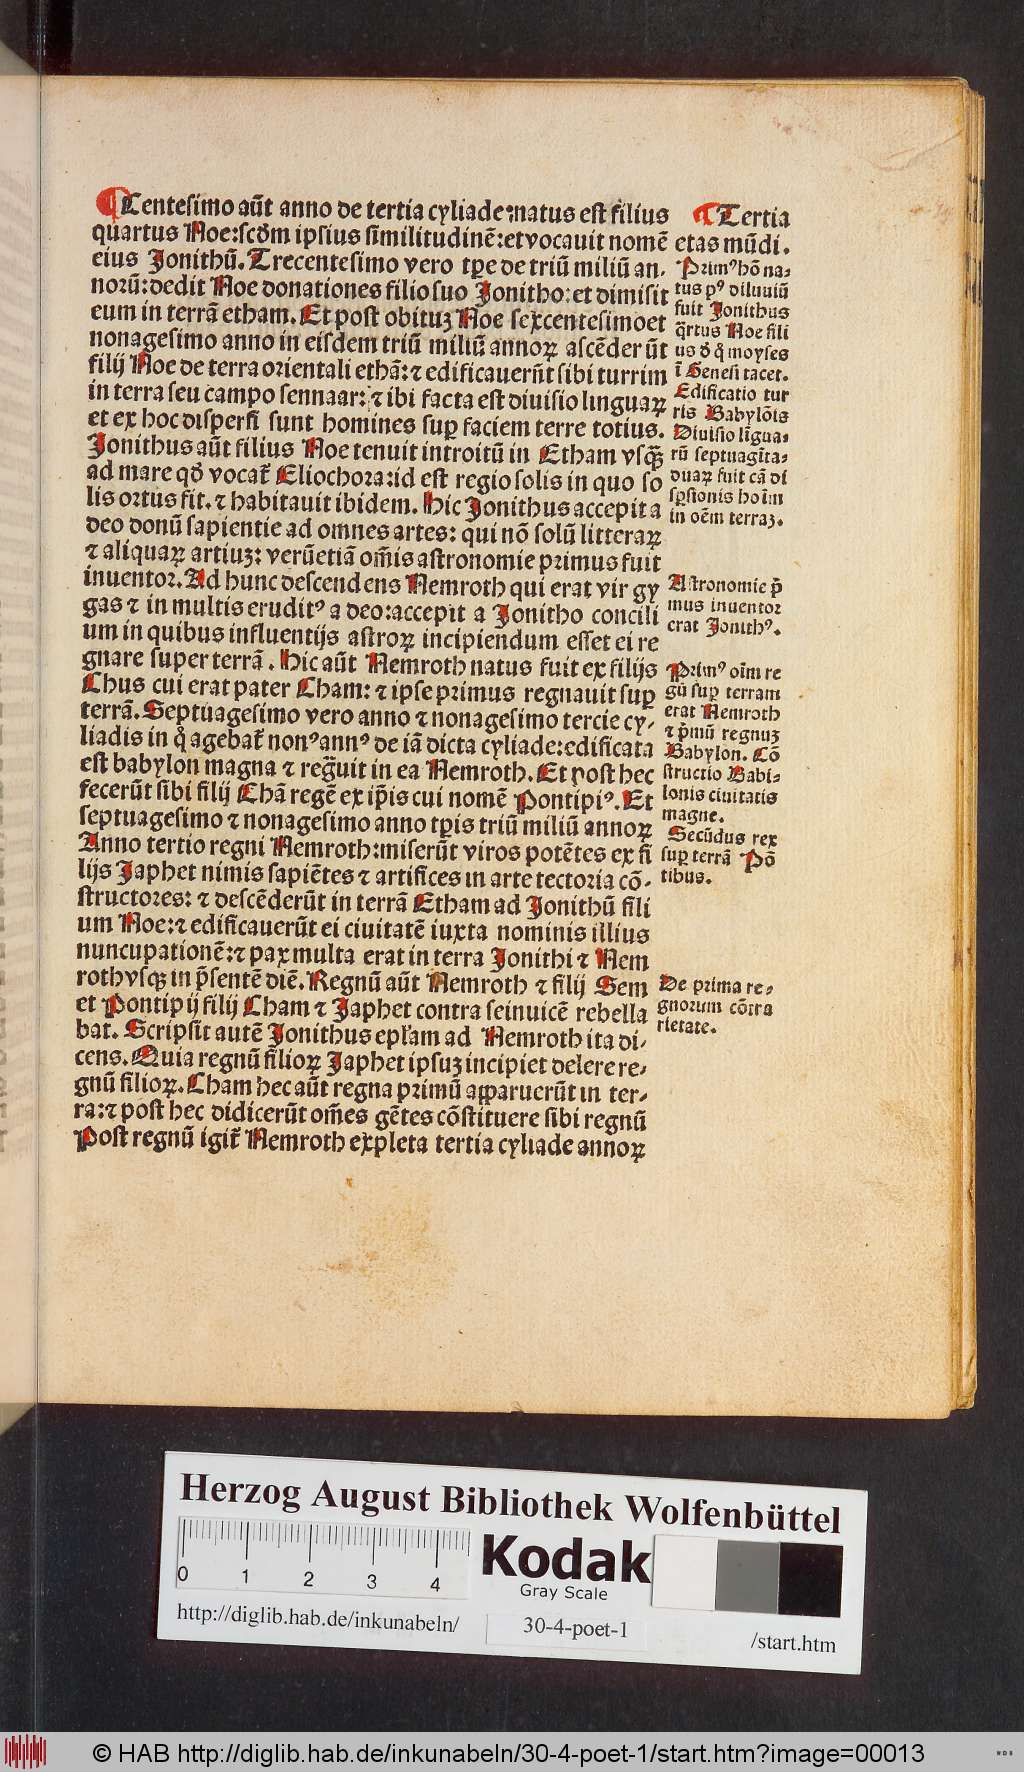 ¶ Centesimo aūt anno de tertia cyliade:natus est filius
quartus Noe:scdm̄ ipsius similitudinē:et vocauit nomē
eius Jonithū. Trecentesimo vero tp̄e de triū miliū an-
norū:dedit Noe donationes filio suo Jonitho:et dimisit
eum in terrā etham. Et post obituȝ Noe sexcentesimo et
nonagesimo anno in eisdem triū miliū annoꝝ ascēderūt
filij Noe de terra orientali ethā:⁊ edificauerūt sibi turrim
in terra seu campo sennaar:⁊ ibi facta est diuisio linguaꝝ
et ex hoc dispersi sunt homines suꝑ faciem terre totius.
Jonithus aūt filius Noe tenuit introitū in Etham vsqꝫ
ad mare qđ vocat̄ Eliochora:id est regio solis in quo so
lis ortus fit. ⁊ habitauit ibidem. Hic Jonithus accepit a
deo donū sapientie ad omnes artes: qui nō solū litteraꝝ
⁊ aliquaꝝ artiuȝ: verūetiā om̄is astronomie primus fuit
inuentor. Ad hunc descendens Nemroth qui erat vir gy
gas ⁊ in multis eruditꝰ a deo:accepit a Jonitho concili
um in quibus influentijs astroꝝ incipiendum esset ei re
gnare super terrā. Hic aūt Nemroth natus fuit ex filijs
Chus cui erat pater Cham: ⁊ ipse primus regnauit suꝑ
terrā. Septuagesimo vero anno ⁊ nonagesimo tercie cy-
liadis in q̊ agebat̄ nonꝰ annꝰ de iā dicta cyliade:edificata
est babylon magna ⁊ regͣuit in ea Nemroth. Et post hec
fecerūt sibi filij Chā regē ex ip̄is cui nomē Pontipiꝰ. Et
septuagesimo ⁊ nonagesimo anno tp̄is triū miliū annoꝝ
Anno tertio regni Nemroth:miserūt viros potētes ex fi
lijs Japhet nimis sapiētes ⁊ artifices in arte tectoria cō-
structores: ⁊ descēderūt in terrā Etham ad Jonithū fili
um Noe:⁊ edificauerūt ei ciuitatē iuxta nominis illius
nuncupationē:⁊ pax multa erat in terra Jonithi ⁊ Nem
roth vsqꝫ in p̄sentē diē. Regnū aūt Nemroth ⁊ filij Sem
et Pontipij filij Cham ⁊ Japhet contra seinuicē rebella
bat. Scripsit autē Jonithus epl̄am ad Nemroth ita di-
cens. Quia regnū filioꝝ Japhet ipsuȝ incipiet delere re-
gnū filioꝝ. Cham hec aūt regna primū apparuerūt in ter-
ra:⁊ post hec didicerūt om̄es gētes cōstituere sibi regnū
Post regnū igit̄ Nemroth expleta tertia cyliade annoꝝ
¶ Tertia
etas mūdi.
Primꝰ hō na-
tus pꝰ diluuiū
fuit Jonithus
q̄rtus Noe fili
us đ q̊ moyses
ī Genesi tacet.
Edificatio tur
ris Babylōis
Diuisio līgua-
rū septuagīta-
duaꝝ fuit cā di
sꝑsionis hoīm
in oēm terraȝ.
Astronomie p̄
mus inuentor
erat Jonithꝰ.
Primꝰ oīm re
gū suꝑ terram
erat Nemroth
⁊ p̄mū regnuȝ
Babylon. Cō
structio Babi-
lonis ciuitatis
magne.
Secūdus rex
suꝑ terrā Pō
tibus.
De prima re-
gnorum cōtra
rietate.
Herzog August Bibliothek Wolfenbüttel
0 1 2 3 4
Kodak
Gray Scale
http://diglib.hab.de/inkunabeln/
30-4-poet-1
/start.htm
© HAB http://diglib.hab.de/inkunabeln/30-4-poet-1/start.htm?image=00013